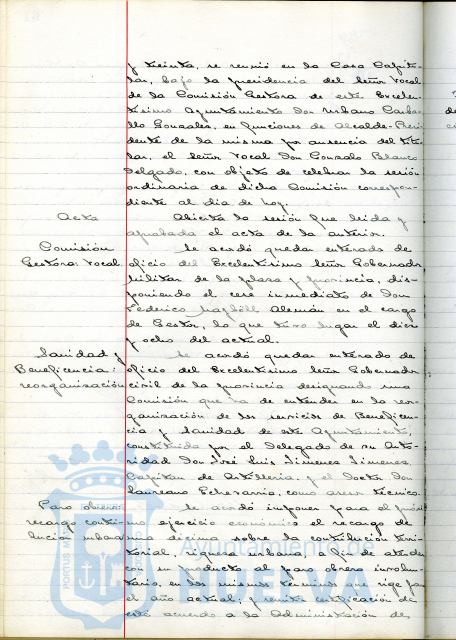 y treinta, se reunió en la Casa Capitu-
lar, bajo la presidencia del Señor Vocal
de la Comisión Gestora de este Excelen-
tísimo Ayuntamiento Don Urbano Carba-
llo Gonzales, en funciones de Alcalde-Presi-
dente de la misma por ausencia del titu-
lar, el Señor Vocal Don Gonzalo Blanco
Delgado, con objeto de celebrar la sesión
ordinaria de dicha Comisión correspon-
diente al día de hoy.
Acta
Abierta la sesión fue leída y
aprobada el acta de la anterior.
Comisión
Gestora: Vocal
Se acordó quedar enterado de
oficio del Excelentísimo Señor Gobernador
Militar de la plaza y provincia, dis-
poniendo el cese inmediato de Don
Federico Alemán en el cargo
de Gestor, lo que tuvo lugar el diez
y ocho del actual.
Sanidad y
Beneficencia:
reorganización
Se acordó quedar enterado de
oficio del Excelentísimo Señor Gobernador
civil de la provincia designando una
Comisión que ha de entender en la reor-
ganización de los servicios de Beneficen-
cia y Sanidad de este Ayuntamiento,
constituida por el Delegado de su Auto-
ridad Don José Luis Jimenez Jimenez
Capitán de Artillería, y el Doctor Don
Laureano Echevarria, como asesor técnico.
Paro obrero:
recargo contri-
bución urbana
Se acordó imponer para el próxi-
mo ejercicio económico el recargo de
una décima sobre la contribución terri-
torial, riqueza urbana, a fin de atender
con su producto al paro obrero involun-
tario, en los mismos términos que rige para
el año actual; y remitir certificación de
este acuerdo a la Administración de
Ayuntamiento de
HUELVA
PORTUS MARIS